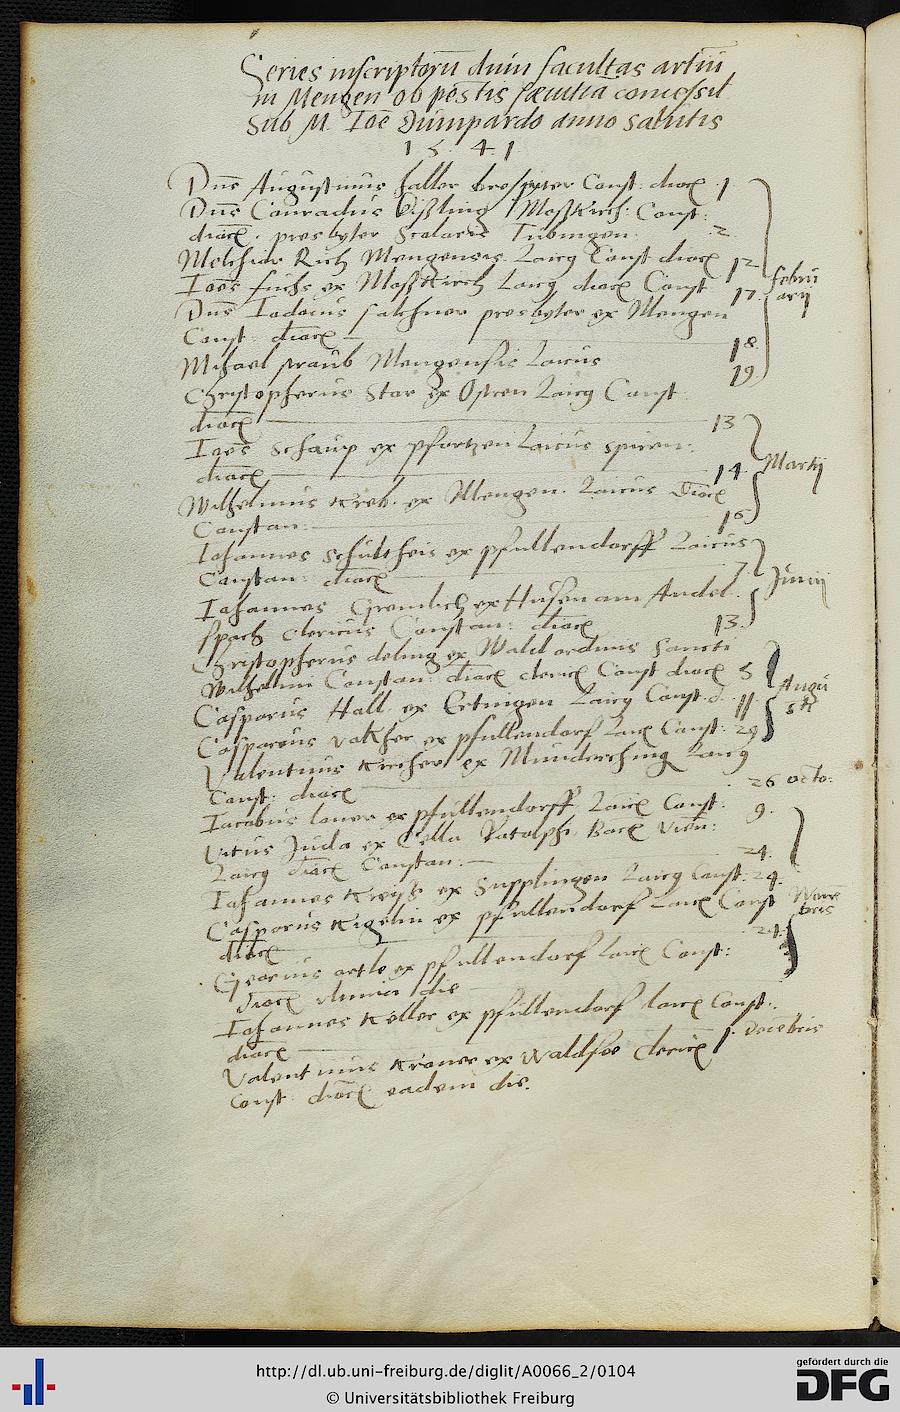 Series inscriptorū dum facultas artiū
in Mengen ob pestis sæuitiā concessit
Sub M. Ioē Dumpardo anno salutis
1 5. 4. 1
Dns Augustinus Haller presbyter Const: dioc 1
Dns Conradus Mößkirch: Const:
dioc. presbyter Tubingen. 2
Melchior Rich Mengensis Laicq Const dioc 12
Ioēs fuchs ex Mößkirch Laicq dioc Const 17
Februarij
Dns Iodocus falchner presbyter ex Mengen
Const: dioc 18
Mihael straub Mengensis Laicus 19
Christopherus Star ex Ostren Laicq Const
dioc 13
Ioēs Schaup ex pfortzen Laicus spiren:
dioc 14
Martij
Wilhelmus Kreb. ex Mengen. Laicus Dioc
Constan: 16
Iohannes Schultheis ex pfullendorff Laicus
Constan: dioc 7
Iunij
Iohannes Gremlich ex Husen am Andel
spach clericus Constan: dioc 13.
Christopherus ex Wald ordinis Sancti
Wilhelmi Constan: dioc cleric Const dioc 5
Augusti
Casparus Hall ex Ertingen Laicq Const: d. 11
Casparus ex pfullendorf Laic Const: 29
Valentinus Kircherr ex Munderching Laicq
Const: dioc 26 octo:
Iacobus ex pfullendorff Laic Const: 9.
Vitus Iuda ex Cella Ratolphi Bacc Vien:
Laicq dioc Constan. 24.
Iohannes Kreyß ex Supplingen Laicq Const: 24.
Casparus Kigelin ex pfullendorf Laic Const
Nouēbris
dioc 24.
Georius ortle ex pfullendorf Laic Const:
dioc die
Iohannes Keller ex pfullendorf laic Const:
dioc 1. Decēbris
Valentinus Kroner ex Waldsee cleric
Const: dioc eadem die.
http://dl.ub.uni-freiburg.de/diglit/A0066_2/0104
© Universitätsbibliothek Freiburg
gefördert durch die
DFG